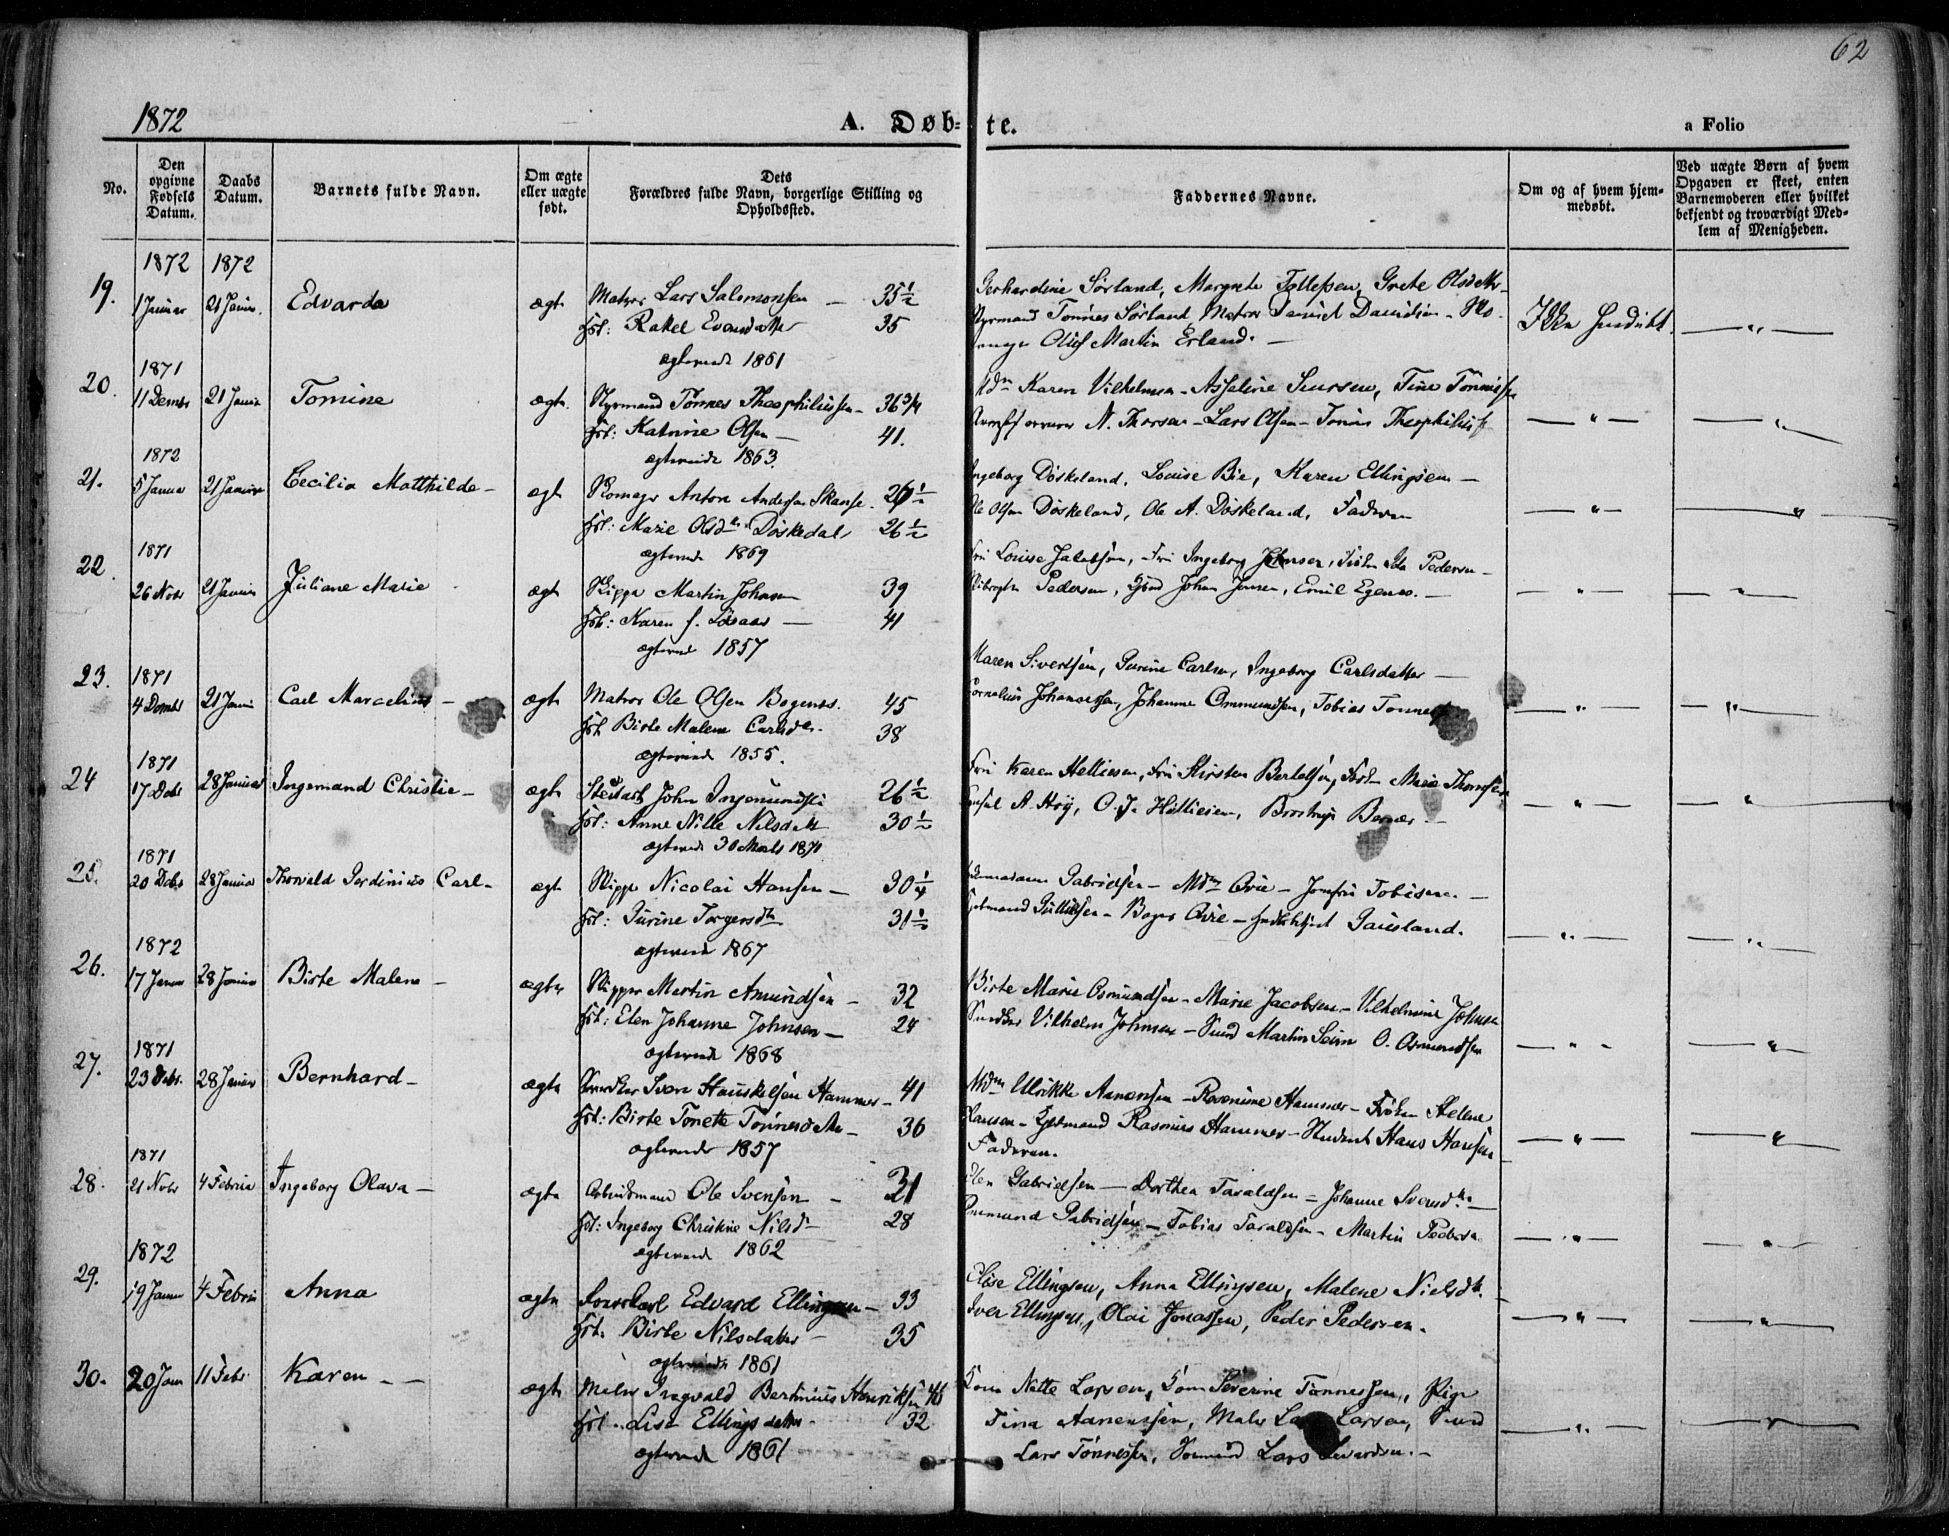 62
1872
A. Døb-te.
a Folio
No.
Den opgivne Fødsels Datum.
Daabs Datum.
Barnets fulde Navn.
Om ægte eller uægte født.
Dets Forældres fulde Navn, borgerlige Stilling og Opholdssted.
Faddernes Navne.
Om og af hvem hjem-medøbt.
Ved uægte Børn af hvem Opgaven er skeet, enten Barnemoderen eller hvilket bekjendt og troværdigt Med-lem af Menigheden.
1872 1872
19. 1 Januar 21 Januar Edvarda ægte Matros Lars Salomonsen — 35½
Hst: Rakel Evensdatter 35
ægteviede 1861
Gerhardine Sørland, Margrete Tollefsen, Grete Olsdatter
Styrmand Tønnes Sørland Matros Daniel Danielsen
Oluf Martin Erland. —
Ikke
1871
20. 11 Decmbr 21 Januar Tomine ægte. Styrmand Tønnes Theophiliussen — 36¾
Hst: Katrine Olsen — 41.
ægteviede 1863.
Mdm Karen Vilhelmsen — Tine Tønnessen
N. Thorsen — Lars Olsen — Tønnes Theophiliusf
1872
21. 5 Januar 21 Januar Cecilia Matthilde — ægte Skomager Anton Andersen Skanse. 26½
Hst: Marie Olsdtr Døskedal 26½
ægteviede 1869
Ingeborg Døskeland, Louise Bie, Karen Ellingsen —
Ole Olsen Døskeland, Ole A. Døskeland, Faderen
1871
22. 26 Novbr 21 Januar Juliane Marie ægte Skipper Martin Johnsen 39
Hst: Karen f. — 41
ægteviede 1857
Fru Louise Jakobsen, Fru Ingeborg Johnsen, Pedersen —
Pedersen, Johan Jensen, Emil Egenes. —
1871
23. 4 Decmbr 21 Januar Carl Marcelius — ægte Matros Ole Olsen Bogenes. 45
Hst Birte Malene Carlsdtr. 38
ægteviede 1855.
Maren Sivertsen, Gurine Carlsen, Ingeborg Carlsdatter —
Cornelius Johannessen, Johannes Ommundsen, Tobias Tønnesen
1871
24 17 Decbr 28 Januar Ingemand Christie — ægte John Ingemundsen 26½
Hst: Anne Nille Nilsdatter 30½
ægteviede 30 Marts 1871.
Fru Karen Helliesen, Fru Kirsten Bertelsen, Frøken Marie Thomsen
Consul A. Høy, O. J. Helliesen, Brostrup Berner. —
1871
25. 20 Decbr 28 Januar Thorvald Gerdinius Carl — ægte Skipper Nicolai Hansen — 30¼
Hst: Gurine Torgersdtr 31½
ægteviede 1867
Gabrielsen — Mdm Qvie — Jomfru Tobisen. —
Kjøbmand Gulliksen — Bager Qvie — Gausland.
1872
26. 17 Januar 28 Januar Birte Malene — ægte Skipper Martin Amundsen — 32
Hst: Elen Johanne Johnsen — 24
ægteviede 1868
Birte Marie Osmundsen — Marie Jacobsen — Vilhelmine Johnsen
Snedker Vilhelm Johnsen — Svend Martin O. Osmundsen
1871
27. 23 Decbr. 28 Januar Bernhard — ægte Snedker Sven Hauskelsen Hammer — 41
Hst: Birte Tonette Tønnesdatter — 36
ægteviede 1857
Mdm Ulrikke Aanensen — Rasmine Hammer — Frøken Helene
Hansen — Kjøbmand Rasmus Hammer — Student Hans Hansen
Faderen.
1871
28. 21 Novbr 4 Februar Ingeborg Olava — ægte Arbeidsmand Ole Svensen — 31
Hst: Ingeborg Christine Nilsdtr 28
ægteviede 1862
Elen Gabrielsen — Dorthea Taraldsen — Johanne Svensdtr —
Ommund Gabrielsen — Tobias Taraldsen — Martin Pedersen
1872
29. 19 Januar 4 Februar Anna ægte Edvard Ellingsen — 33
Hst. Birte Nilsdatter — 35
ægteviede 1861
Elise Ellingsen, Anna Ellingsen, Malene Nielsdtr.
Iver Ellingsen, Olai Jonassen, Peder Pedersen.
30. 20 Jan 11 Febr. Karen — — ægte Maler Ingvald Bertinius Henriksen 46
Hst. Lise Ellingsdatter 32
ægteviede 1861
Kone Nette Larsen, Kone Severine Tønnessen, Pige
Tina Aanensen, Maler Lars Larsen, Svend
Lars Tønnessen, Lars —